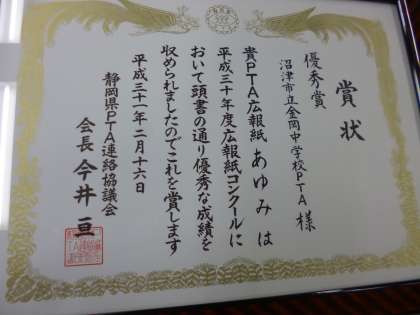 賞状
優秀賞
沼津市立金岡中学校PTA様
貴PTA広報紙 あゆみ は
平成三十年度広報紙コンクールに
おいて頭書の通り優秀な成績を
収められましたのでこれを賞します
平成三十一年二月十六日
静岡県PTA連絡協議会
会長 今井 亘